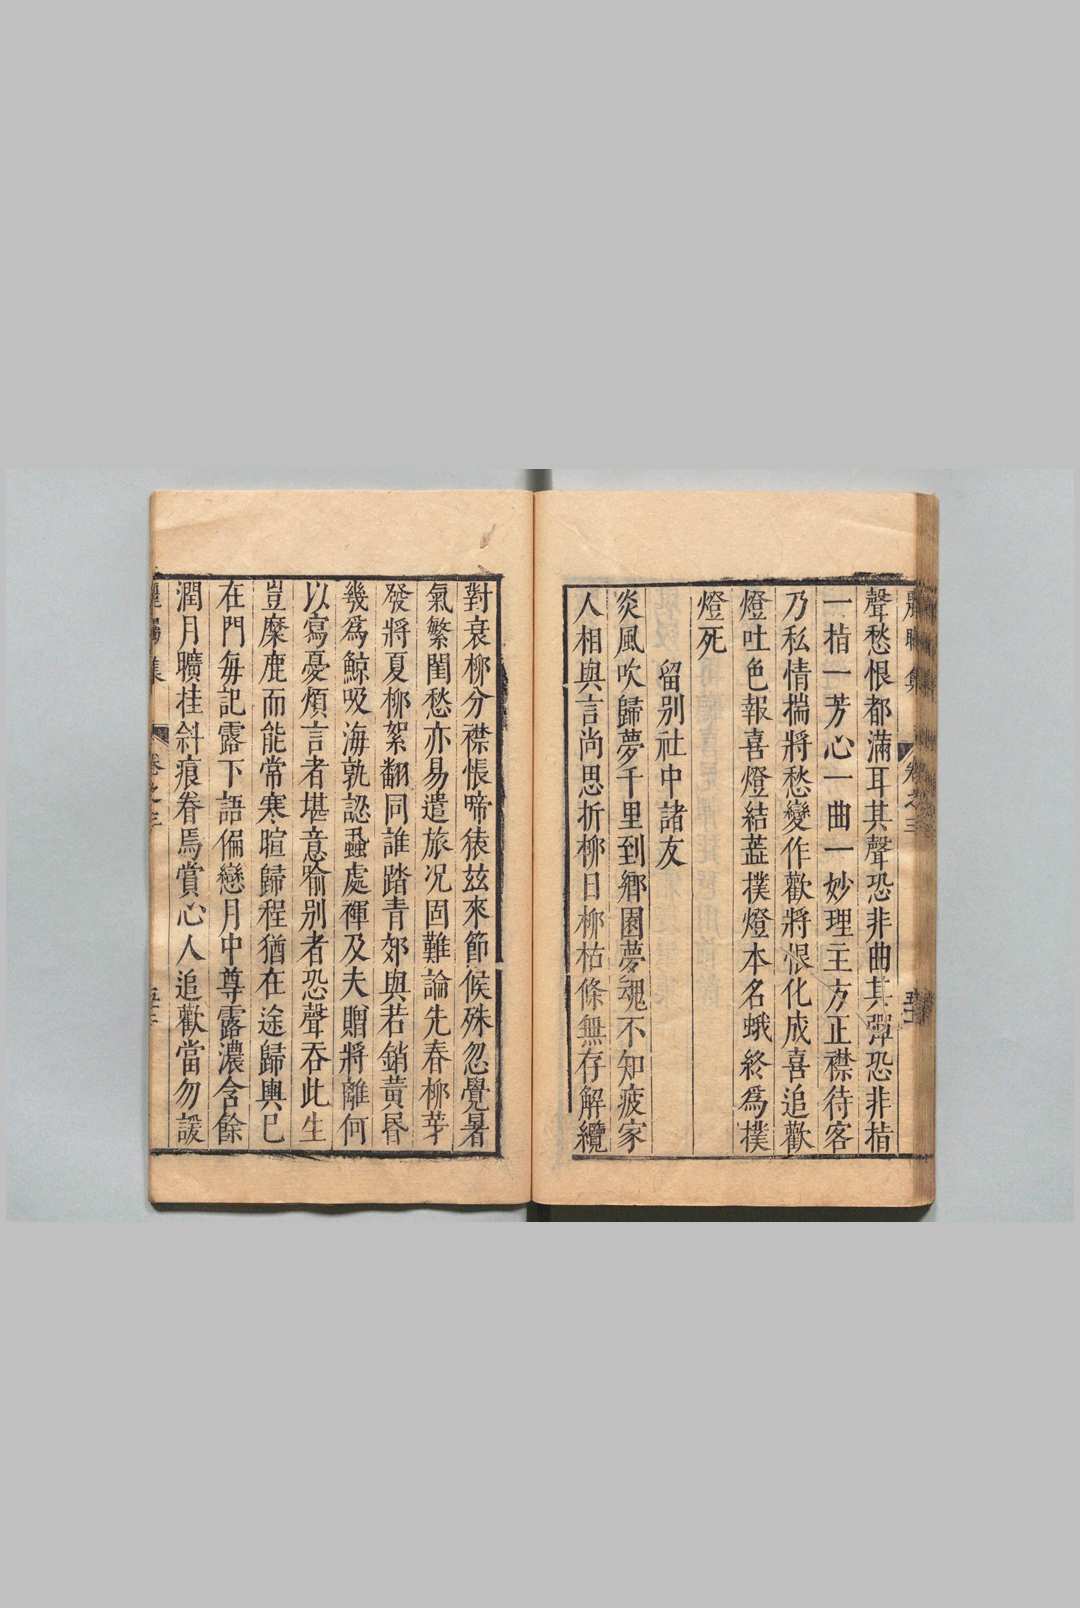 聲愁恨都滿耳其聲恐非曲其彈恐非指
一指一芳心一曲一妙理主方正襟待客
乃私情揣將愁變作歡將恨化成喜追歡
燈吐色報喜燈結蕋撲燈本名蛾終為撲
燈死
留別社中諸友
炎風吹歸夢千里到鄉園夢魂不知疲家
人相與言尚思折柳日柳枯條無存解纜
對衰柳分襟悵啼猿玆來節候殊忽覺暑
氣繁閨愁亦易遣旅况固難論先春柳芽
發將夏柳絮翻同誰踏青郊與若銷黃昏
幾為鯨吸海孰認蝨處褌及夫贈將離何
以寫憂煩言者堪意喻別者恐聲吞此生
豈麋鹿而能常寒暄歸程猶在途歸輿已
在門每記露下語偏戀月中尊露濃含餘
潤月曠挂斜痕眷焉賞心人追歡當勿諼
集
卷之三